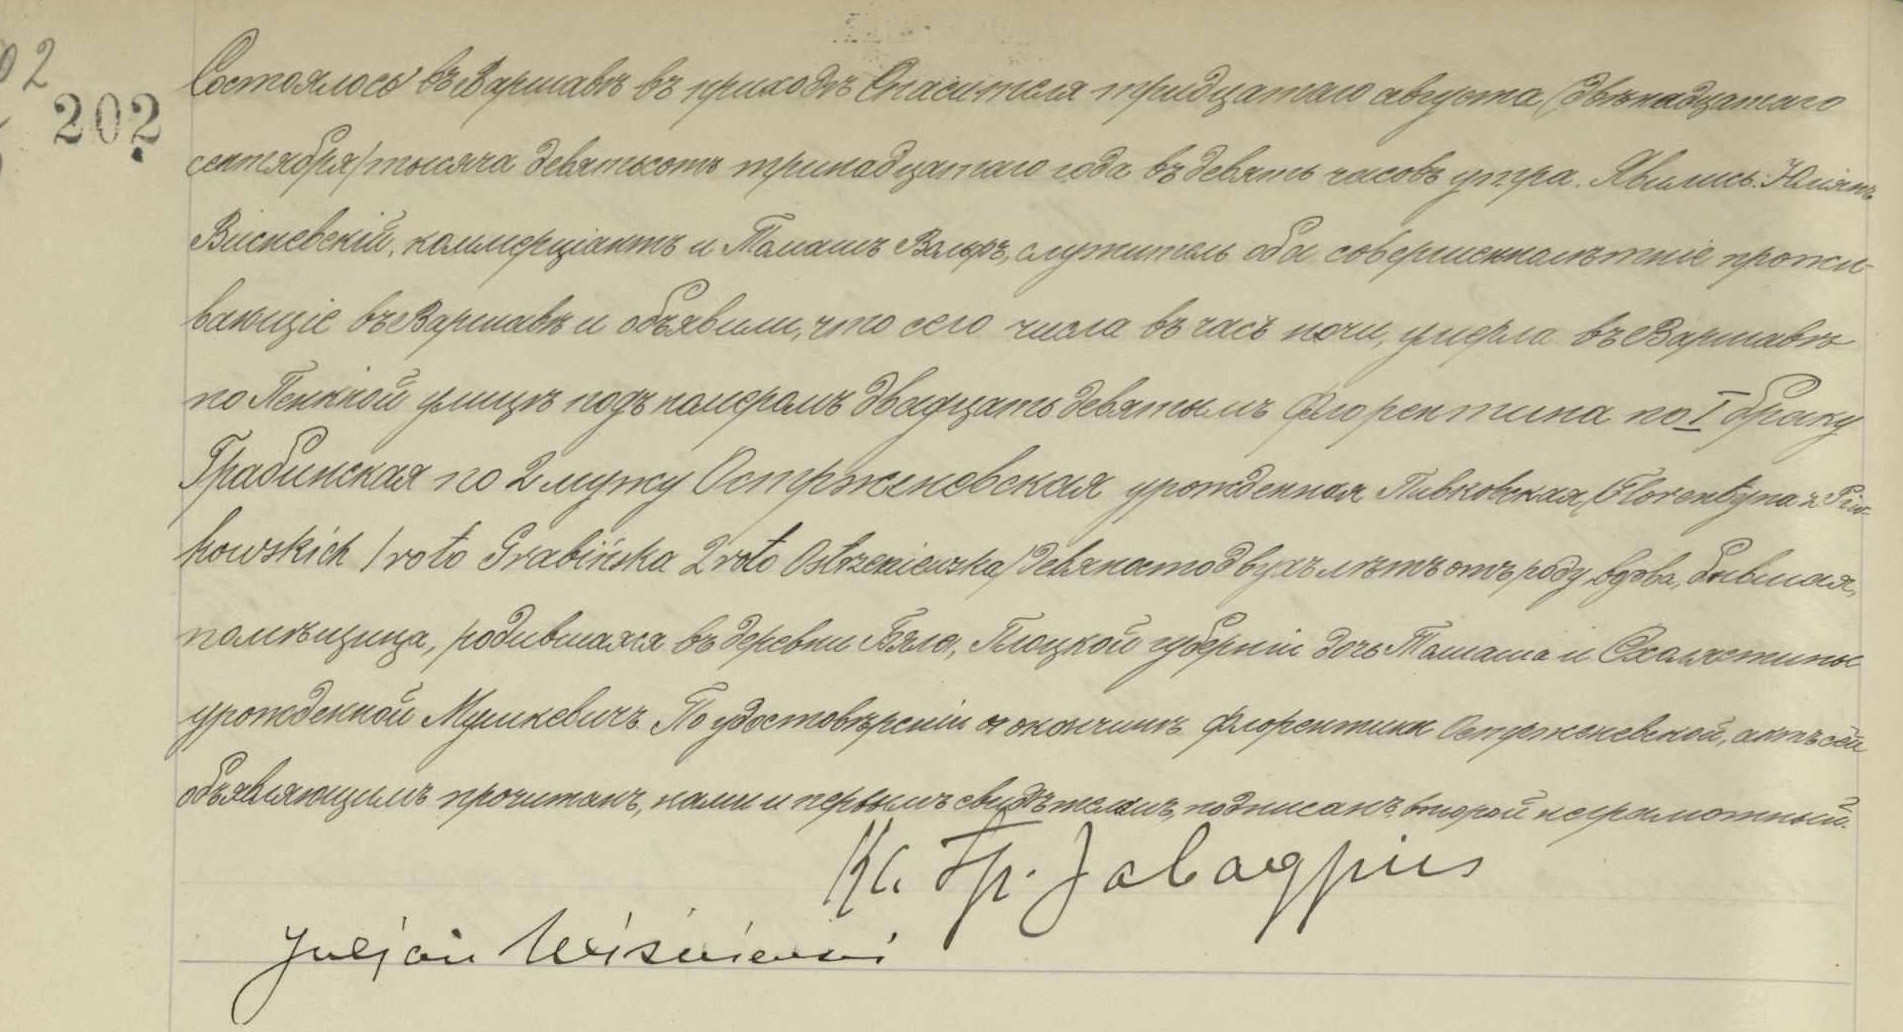 02
202
Состоялось въ Варшавѣ въ приходѣ Спасителя тридцатаго августа /двѣнадцатаго
сентября/ тысяча девятьсотъ тринадцатаго года въ девять часовъ утра. Явились: Юліанъ
Висневскій, коммерціантъ и Томашъ Вальчъ, служитель оба совершеннолѣтніе прожи-
вающіе въ Варшавѣ и объявили, что сего числа въ часъ ночи, умерла въ Варшавѣ
по Пенкной улицѣ подъ номеромъ двадцать девятымъ Флорентина по I браку
Грабинская по 2 мужу Остржженевская урожденная Пивковская, /Florentyna z Piw-
kowskich 1 voto Grabińska 2 voto Ostrzeniewska/ девяносто двухъ лѣтъ отъ роду, вдова, бывшая
помѣщица, родившаяся въ деревни Бяло, Плоцкой губерніи дочь Томаша и Схолястины
урожденной Мушкевичъ. По удостовѣреніи о кончинѣ Флорентины Остржженевской, актъ сей
объявляющимъ прочитанъ, нами и первымъ свидѣтелемъ, подписанъ, второй неграмотный.
Кс. Гр.
Juljan Wiśniewski